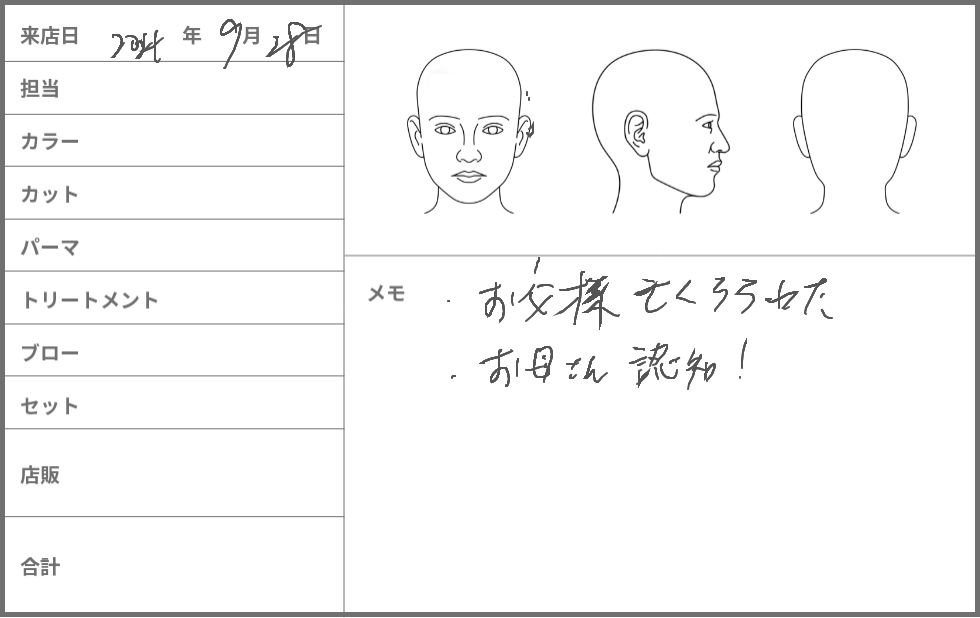 来店日 2024 年 9月 28日
担当
カラー
カット
パーマ
トリートメント
ブロー
セット
店販
合計
メモ
・お父様 亡くろうれた
・お母さん 認知!